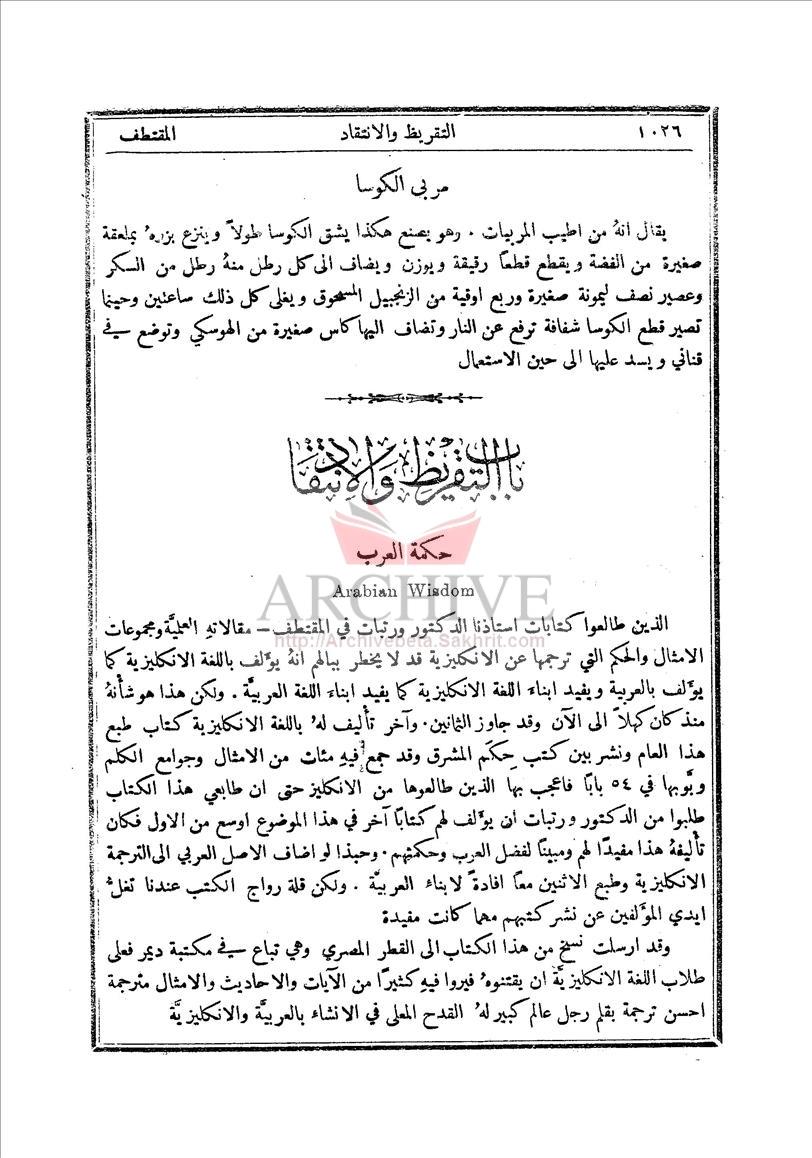 ١٠٢٦ التقريظ والانتقاد المقتطف
مربى الكوسا
يقال انهُ من اطيب المربيات . وهو يصنع هكذا يشق الكوسا طولاً وينزع بزرهُ بملعقة
صغيرة من الفضة ويقطع قطعاً رقيقة ويوزن ويضاف الى كل رطل منهُ رطل من السكر
وعصير نصف ليمونة صغيرة وربع اوقية من الزنجبيل المسحوق ويغلى كل ذلك ساعتين وحينما
تصير قطع الكوسا شفافة ترفع عن النار وتضاف اليها كاس صغيرة من الهوسكي وتوضع في
قناني ويسد عليها الى حين الاستعمال
باب التقريظ والانتقاد
حكمة العرب
ARCHIVE
Arabian Wisdom
الذين طالعوا كتابات استاذنا الدكتور ورتبات في المقتطف – مقالاتهِ العلميَّة ومجموعات
http://Archivebeta.Sakhrit.com
الامثال والحكم التي ترجمها عن الانكليزية قد لا يخطر ببالهم انهُ يؤَلف باللغة الانكليزية كما
يؤَلف بالعربية ويفيد ابناء اللغة الانكليزية كما يفيد ابناء اللغة العربيَّة . ولكن هذا هو شأنهُ
منذ كان كهلاً الى الآن وقد جاوز الثمانين . وآخر تأليف لهُ باللغة الانكليزية كتاب طبع
هذا العام ونشر بين كتب حِكَم المشرق وقد جمع فيهِ مئات من الامثال وجوامع الكلم
وبوَّبها في ٥٤ بابًا فاعجب بها الذين طالعوها من الانكليز حتى ان طابعي هذا الكتاب
طلبوا من الدكتور ورتبات ان يؤَلف لهم كتابًا آخر في هذا الموضوع اوسع من الاول فكان
تأليفهُ هذا مفيدًا لهم ومبينًا لفضل العرب وحكمتهم . وحبذا لو اضاف الاصل العربي الى الترجمة
الانكليزية وطبع الاثنين معًا افادةً لابناء العربيَّة . ولكن قلة رواج الكتب عندنا تغلُّ
ايدي المؤَلفين عن نشر كتبهم مهما كانت مفيدة
وقد ارسلت نسخ من هذا الكتاب الى القطر المصري وهي تباع في مكتبة ديمر فعلى
طلاب اللغة الانكليزيَّة ان يقتنوهُ فيروا فيهِ كثيرًا من الآيات والاحاديث والامثال مترجمة
احسن ترجمة بقلم رجل عالم كبير لهُ القدح المعلى في الانشاء بالعربيَّة والانكليزيَّة